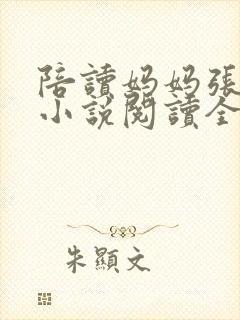 陪讀妈妈張
小說閱讀全
朱顯文